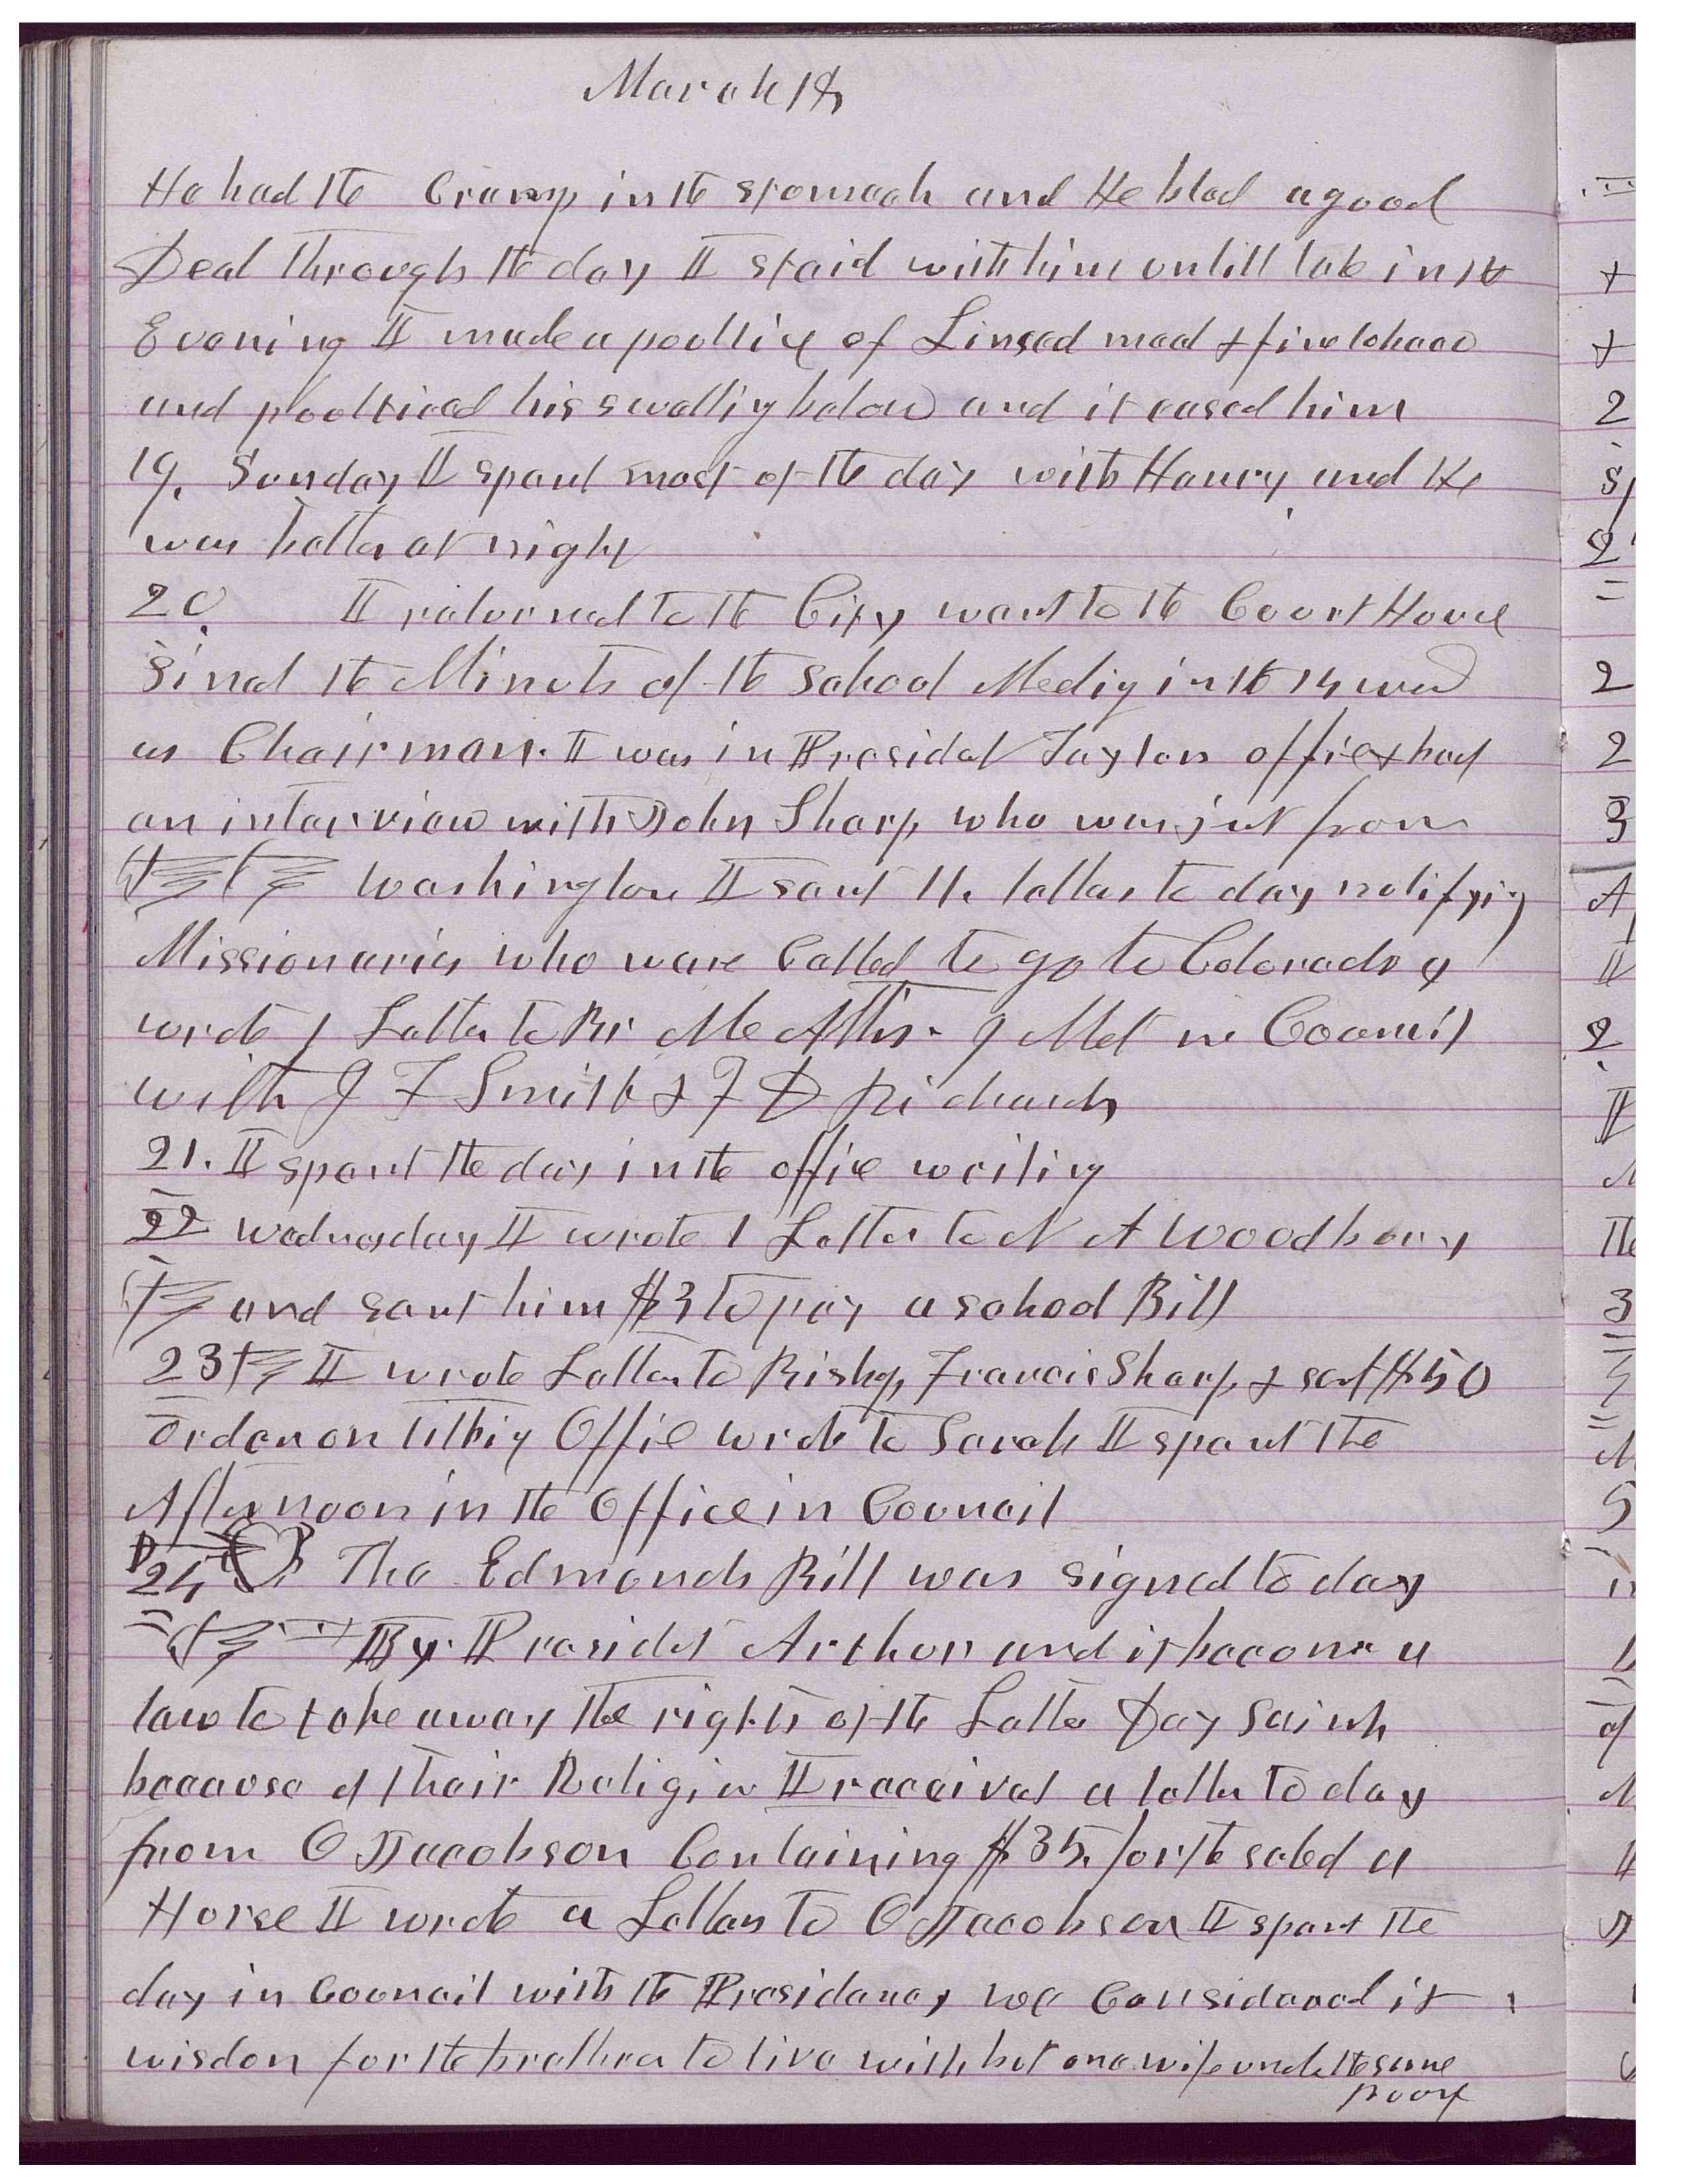 March 18
He had the Cramp in the stomach and He bled a good
Deal through the day I staid with him untill late in the
Evening I made a poultice of Linseed meal & fine tobacco
and poolticed his swelling below and it eased him
19. Sunday I spent most of the day with Henry and He
was better at night
20. I returned to the City went to the Court House
Sined the Minuts of the School Meeting in the 14 ward
as Chairman. I was in President Taylors office & had
an interview with John Sharp who was just from
Washington I sent 11 letters to day notifying
Missionaries who were Called to go to Colorado &
wrote 1 Letter to Br McAllister. I Met in Council
with J F Smith & F D Richards
21. I spent the day in the office writing
22 Wednesday I wrote 1 Letter to N A Woodbury
and sent him $3 to pay a school Bill
23 I wrote Letter to Bishop Francis Sharp, & sent $50
order on tithing Office wrote to Sarah I spent the
Afternoon in the Office in Council
24 The Edmonds Bill was signed to day
By President Arthur and it become a
law to take away the rights of the Latter Day Saints
because of their Religion I received a letter to day
from O Jacobson Containing $35. for the sale of a
Horse I wrote a Letter to O Jacobson I spent the
day in Council with the Presidency we Considered it
wisdom for the brethren to live with but one wife under the same
roof